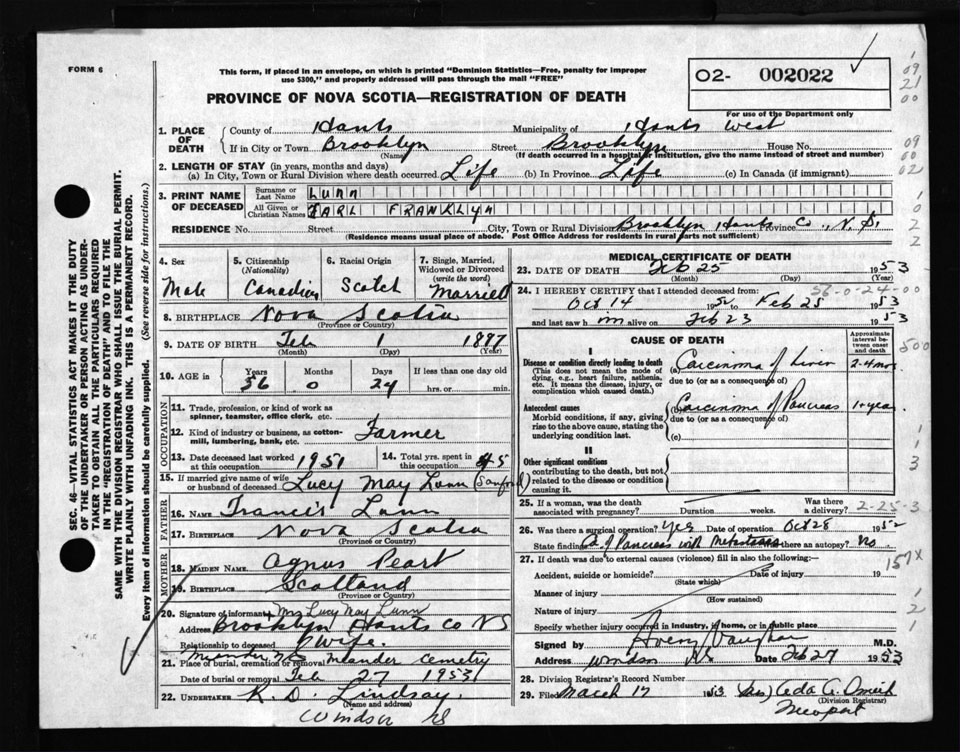 FORM 6
This form, if placed in an envelope, on which is printed "Dominion Statistics—Free, penalty for improper
use $300," and properly addressed will pass through the mail "FREE"
02- 002022
PROVINCE OF NOVA SCOTIA—REGISTRATION OF DEATH
For use of the Department only
09
21
00
1. PLACE OF DEATH
County of Hants Municipality of Hants West
If in City or Town Brooklyn Street Brooklyn House No.
(Name) (If death occurred in a hospital or institution, give the name instead of street and number)
09
00
02
2. LENGTH OF STAY (in years, months and days)
(a) In City, Town or Rural Division where death occurred Life (b) In Province Life (c) In Canada (if immigrant)
3. PRINT NAME OF DECEASED
Surname or Last Name LUNN
All Given or Christian Names EARL FRANKLYN
1
0
2
2
RESIDENCE No. Street City, Town or Rural Division Brooklyn Hants Co Province N.S.
(Residence means usual place of abode. Post Office Address for residents in rural parts not sufficient)
4. Sex
Male
5. Citizenship
(Nationality)
Canadian
6. Racial Origin
Scotch
7. Single, Married,
Widowed or Divorced
(write the word)
Married
8. BIRTHPLACE Nova Scotia
(Province or Country)
9. DATE OF BIRTH Feb 1 1897
(Month) (Day) (Year)
10. AGE in
Years Months Days If less than one day
56 0 24 hrs. or min.
OCCUPATION
11. Trade, profession, or kind of work as
spinner, teamster, office clerk, etc.
12. Kind of industry or business, as cotton-
mill, lumbering, bank, etc. Farmer
13. Date deceased last worked
at this occupation 1951
14. Total yrs. spent in
this occupation 45
15. If married give name of wife
or husband of deceased Lucy May Lunn (Sanford)
FATHER
16. NAME Francis Lunn
17. BIRTHPLACE Nova Scotia
(Province or Country)
MOTHER
18. MAIDEN NAME Agnus Peart
19. BIRTHPLACE Scotland
(Province or Country)
20. Signature of informant Mrs Lucy May Lunn
Address Brooklyn Hants Co NS
Relationship to deceased Wife
Meander, N.S.
21. Place of burial, cremation or removal Meander Cemetry
Date of burial or removal Feb 27 1953
22. UNDERTAKER K. D. Lindsay
(Name and address)
Windsor NS
MEDICAL CERTIFICATE OF DEATH
23. DATE OF DEATH Feb 25 1953
(Month) (Day) (Year)
24. I HEREBY CERTIFY that I attended deceased from:
56-0-24-00
Oct 14 1952 to Feb 25 1953
and last saw him alive on Feb 23 1953
CAUSE OF DEATH
Approximate interval between onset and death
500
I
Disease or condition directly leading to death
(This does not mean the mode of
dying, e.g., heart failure, asthenia,
etc. It means the disease, injury, or
complication which caused death.)
(a) Carcinoma of Liver 2-4 mos
due to (or as a consequence of)
Antecedent causes
Morbid conditions, if any, giving
rise to the above cause, stating the
underlying condition last.
(b) Carcinoma of Pancreas 1+ year.
due to (or as a consequence of)
(c)
1
1
3
II
Other significant conditions
contributing to the death, but not
related to the disease or condition
causing it.
25. If a woman, was the death
associated with pregnancy? Duration weeks. Was there
a delivery?
2-25-3
26. Was there a surgical operation? Yes Date of operation Oct 28 1952
State findings Ca of Pancreas with Metastases Was there an autopsy? No
27. If death was due to external causes (violence) fill in also the following:—
157X
Accident, suicide or homicide? Date of injury 19
(State which)
Manner of injury
(How sustained)
Nature of injury
Specify whether injury occurred in industry, home, or in public place
1
2
1
Signed Avery Vaughan M.D.
Address Windsor NS Date Feb 27 1953
28. Division Registrar's Record Number
29. Filed March 17 1953 (Mrs) Ada A.
(Division Registrar)
Newport
SEC. 46-VITAL STATISTICS ACT MAKES IT THE DUTY
OF THE UNDERTAKER OR PERSON ACTING AS UNDER-
TAKER TO OBTAIN ALL THE PARTICULARS REQUIRED
IN THE "REGISTRATION OF DEATH" AND TO FILE THE
SAME WITH THE DIVISION REGISTRAR WHO SHALL ISSUE THE BURIAL PERMIT.
WRITE PLAINLY WITH UNFADING INK. THIS IS A PERMANENT RECORD.
Every item of information should be carefully supplied. (See reverse side for instructions.)